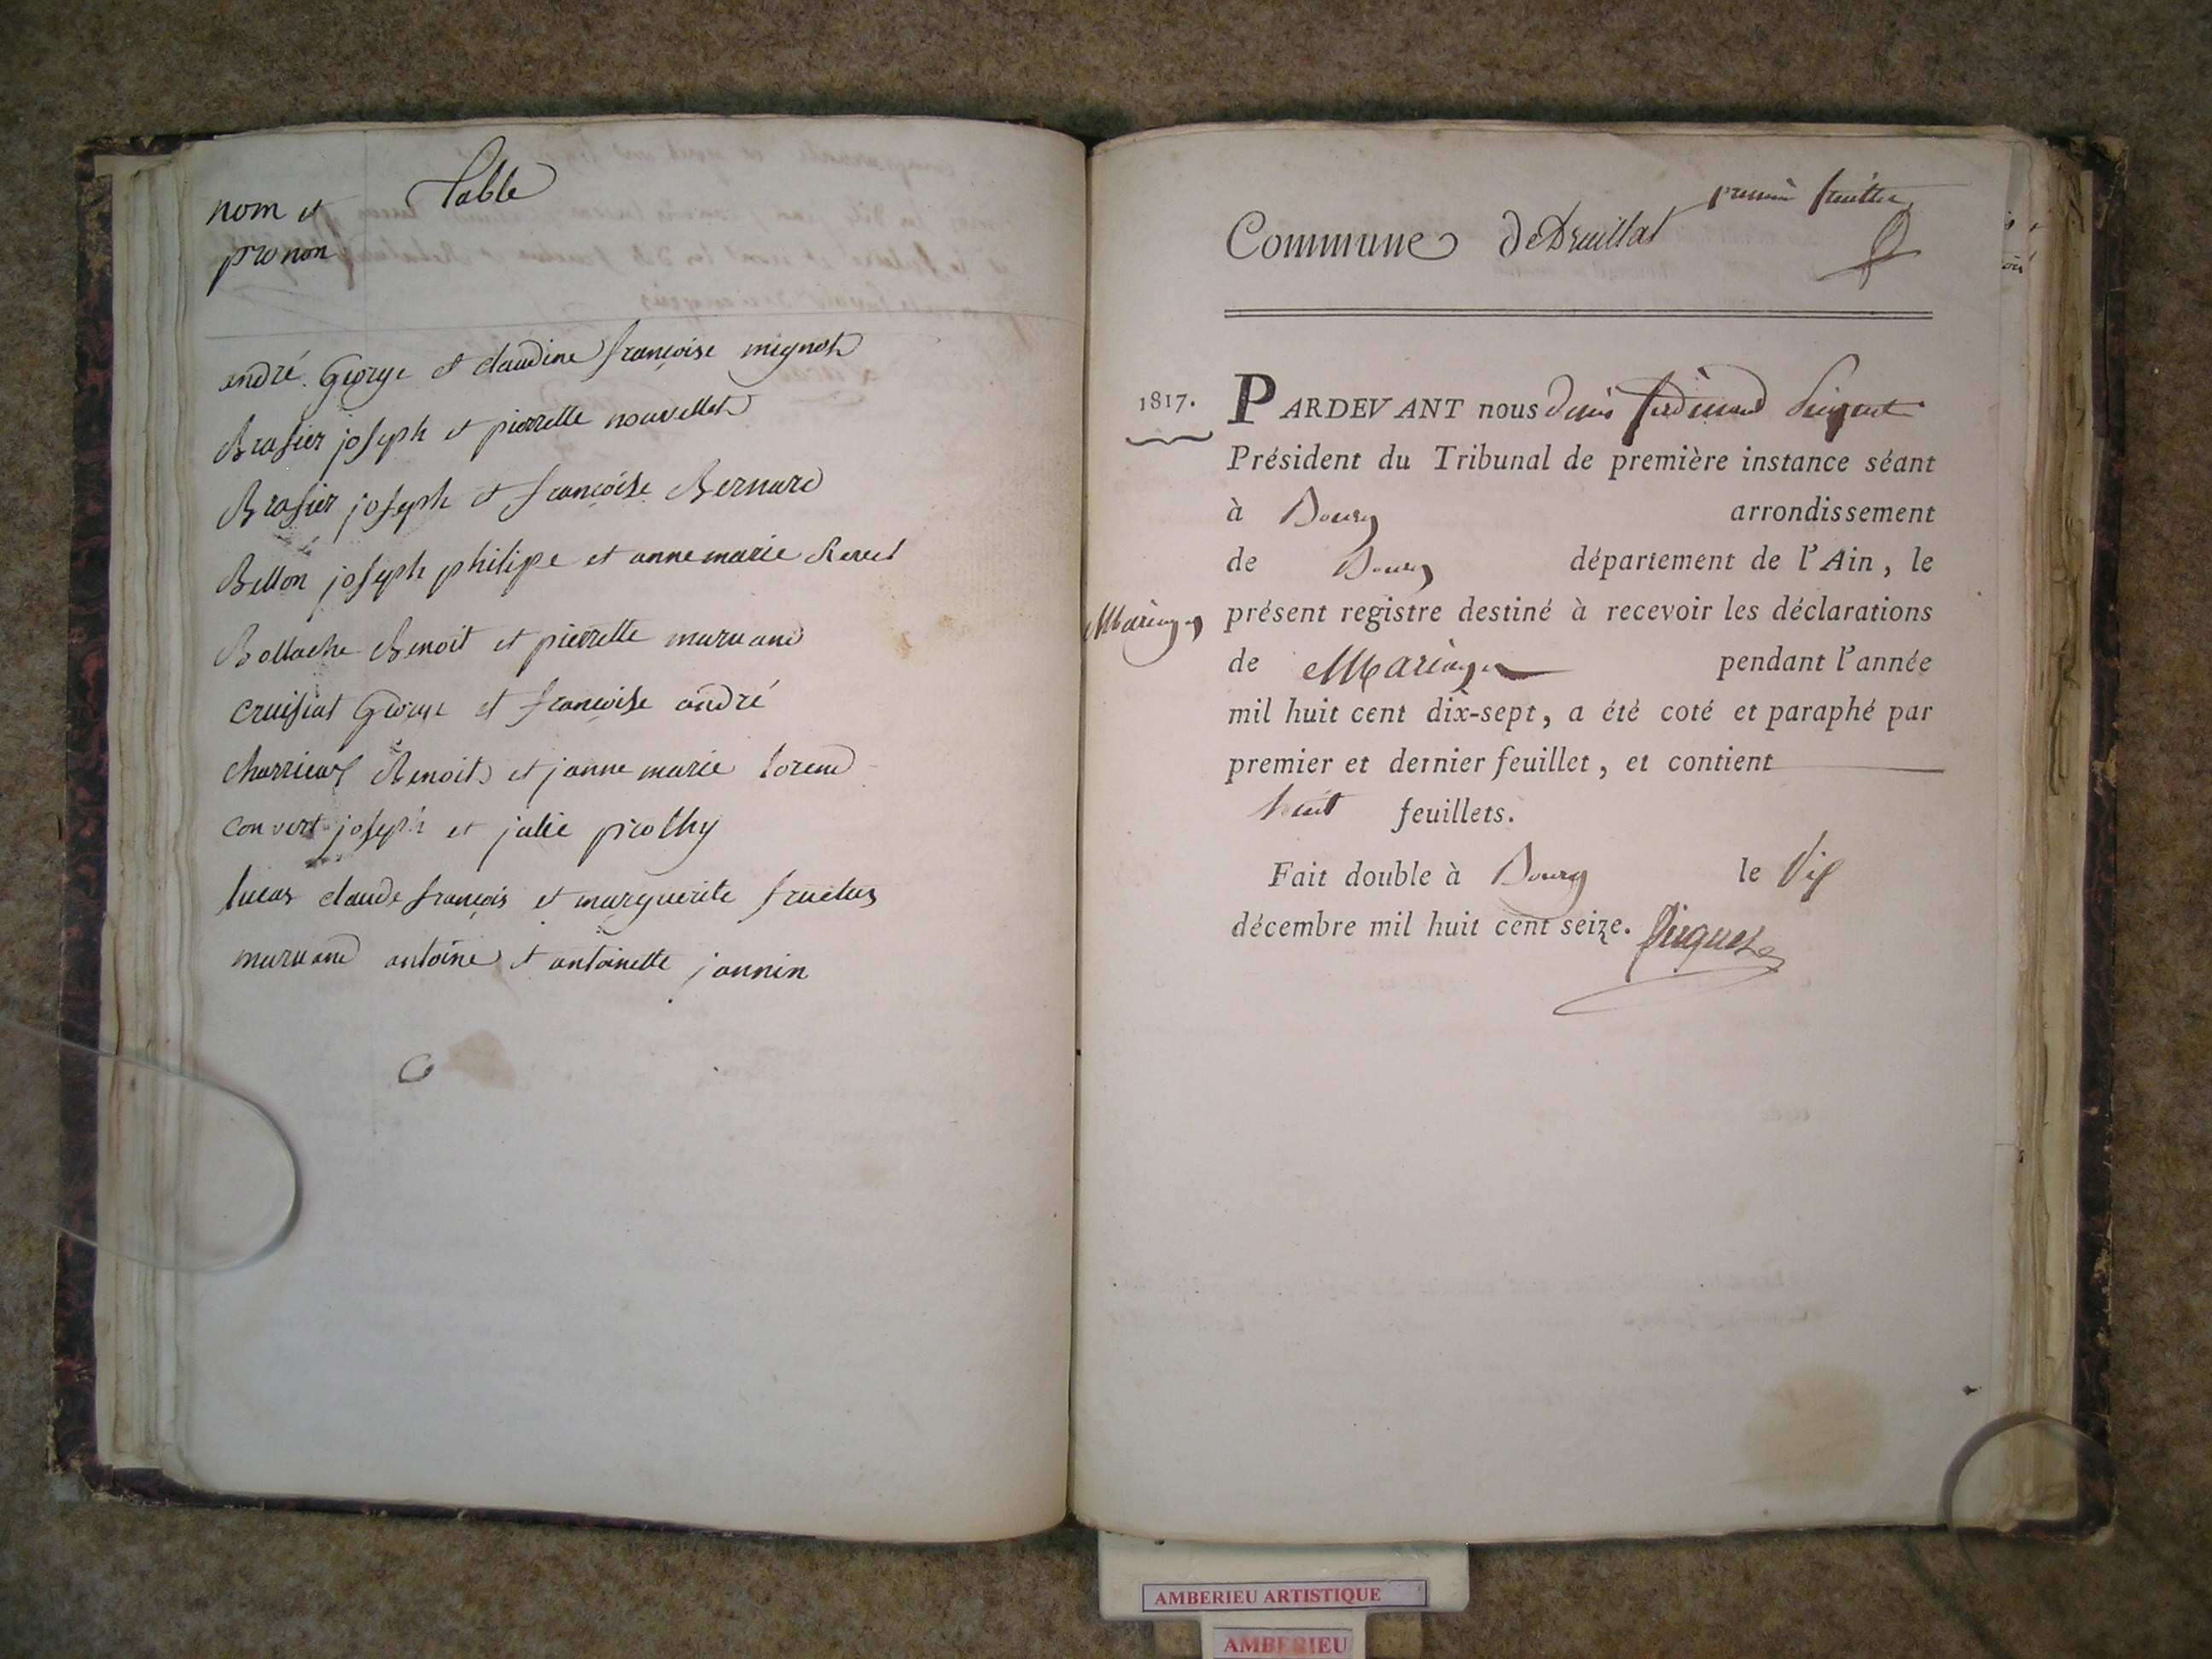 Table
nom et
pronon
andré George et claudine françoise mignot
Brasier joseph et pierrette nouvellet
Brasier joseph et françoise Bernard
Bellon joseph philipe et anne marie Revel
Bollache Benoit et pierrette
cruisiat George et françoise andré
Benoit et janne marie
convert joseph et julie picothy
lucas claude françois et marguerite fructus
antoine et antoinette jannin
premier feuillet
Commune de Druillat
1817.
PARDEVANT nous Denis ferdinand
Président du Tribunal de première instance séant
à Bourg arrondissement
de Bourg département de l'Ain, le
Mariages
présent registre destiné à recevoir les déclarations
de Mariages pendant l'année
mil huit cent dix-sept, a été coté et paraphé par
premier et dernier feuillet, et contient
huit feuillets.
Fait double à Bourg le
décembre mil huit cent seize.
AMBERIEU ARTISTIQUE
AMBERIEU